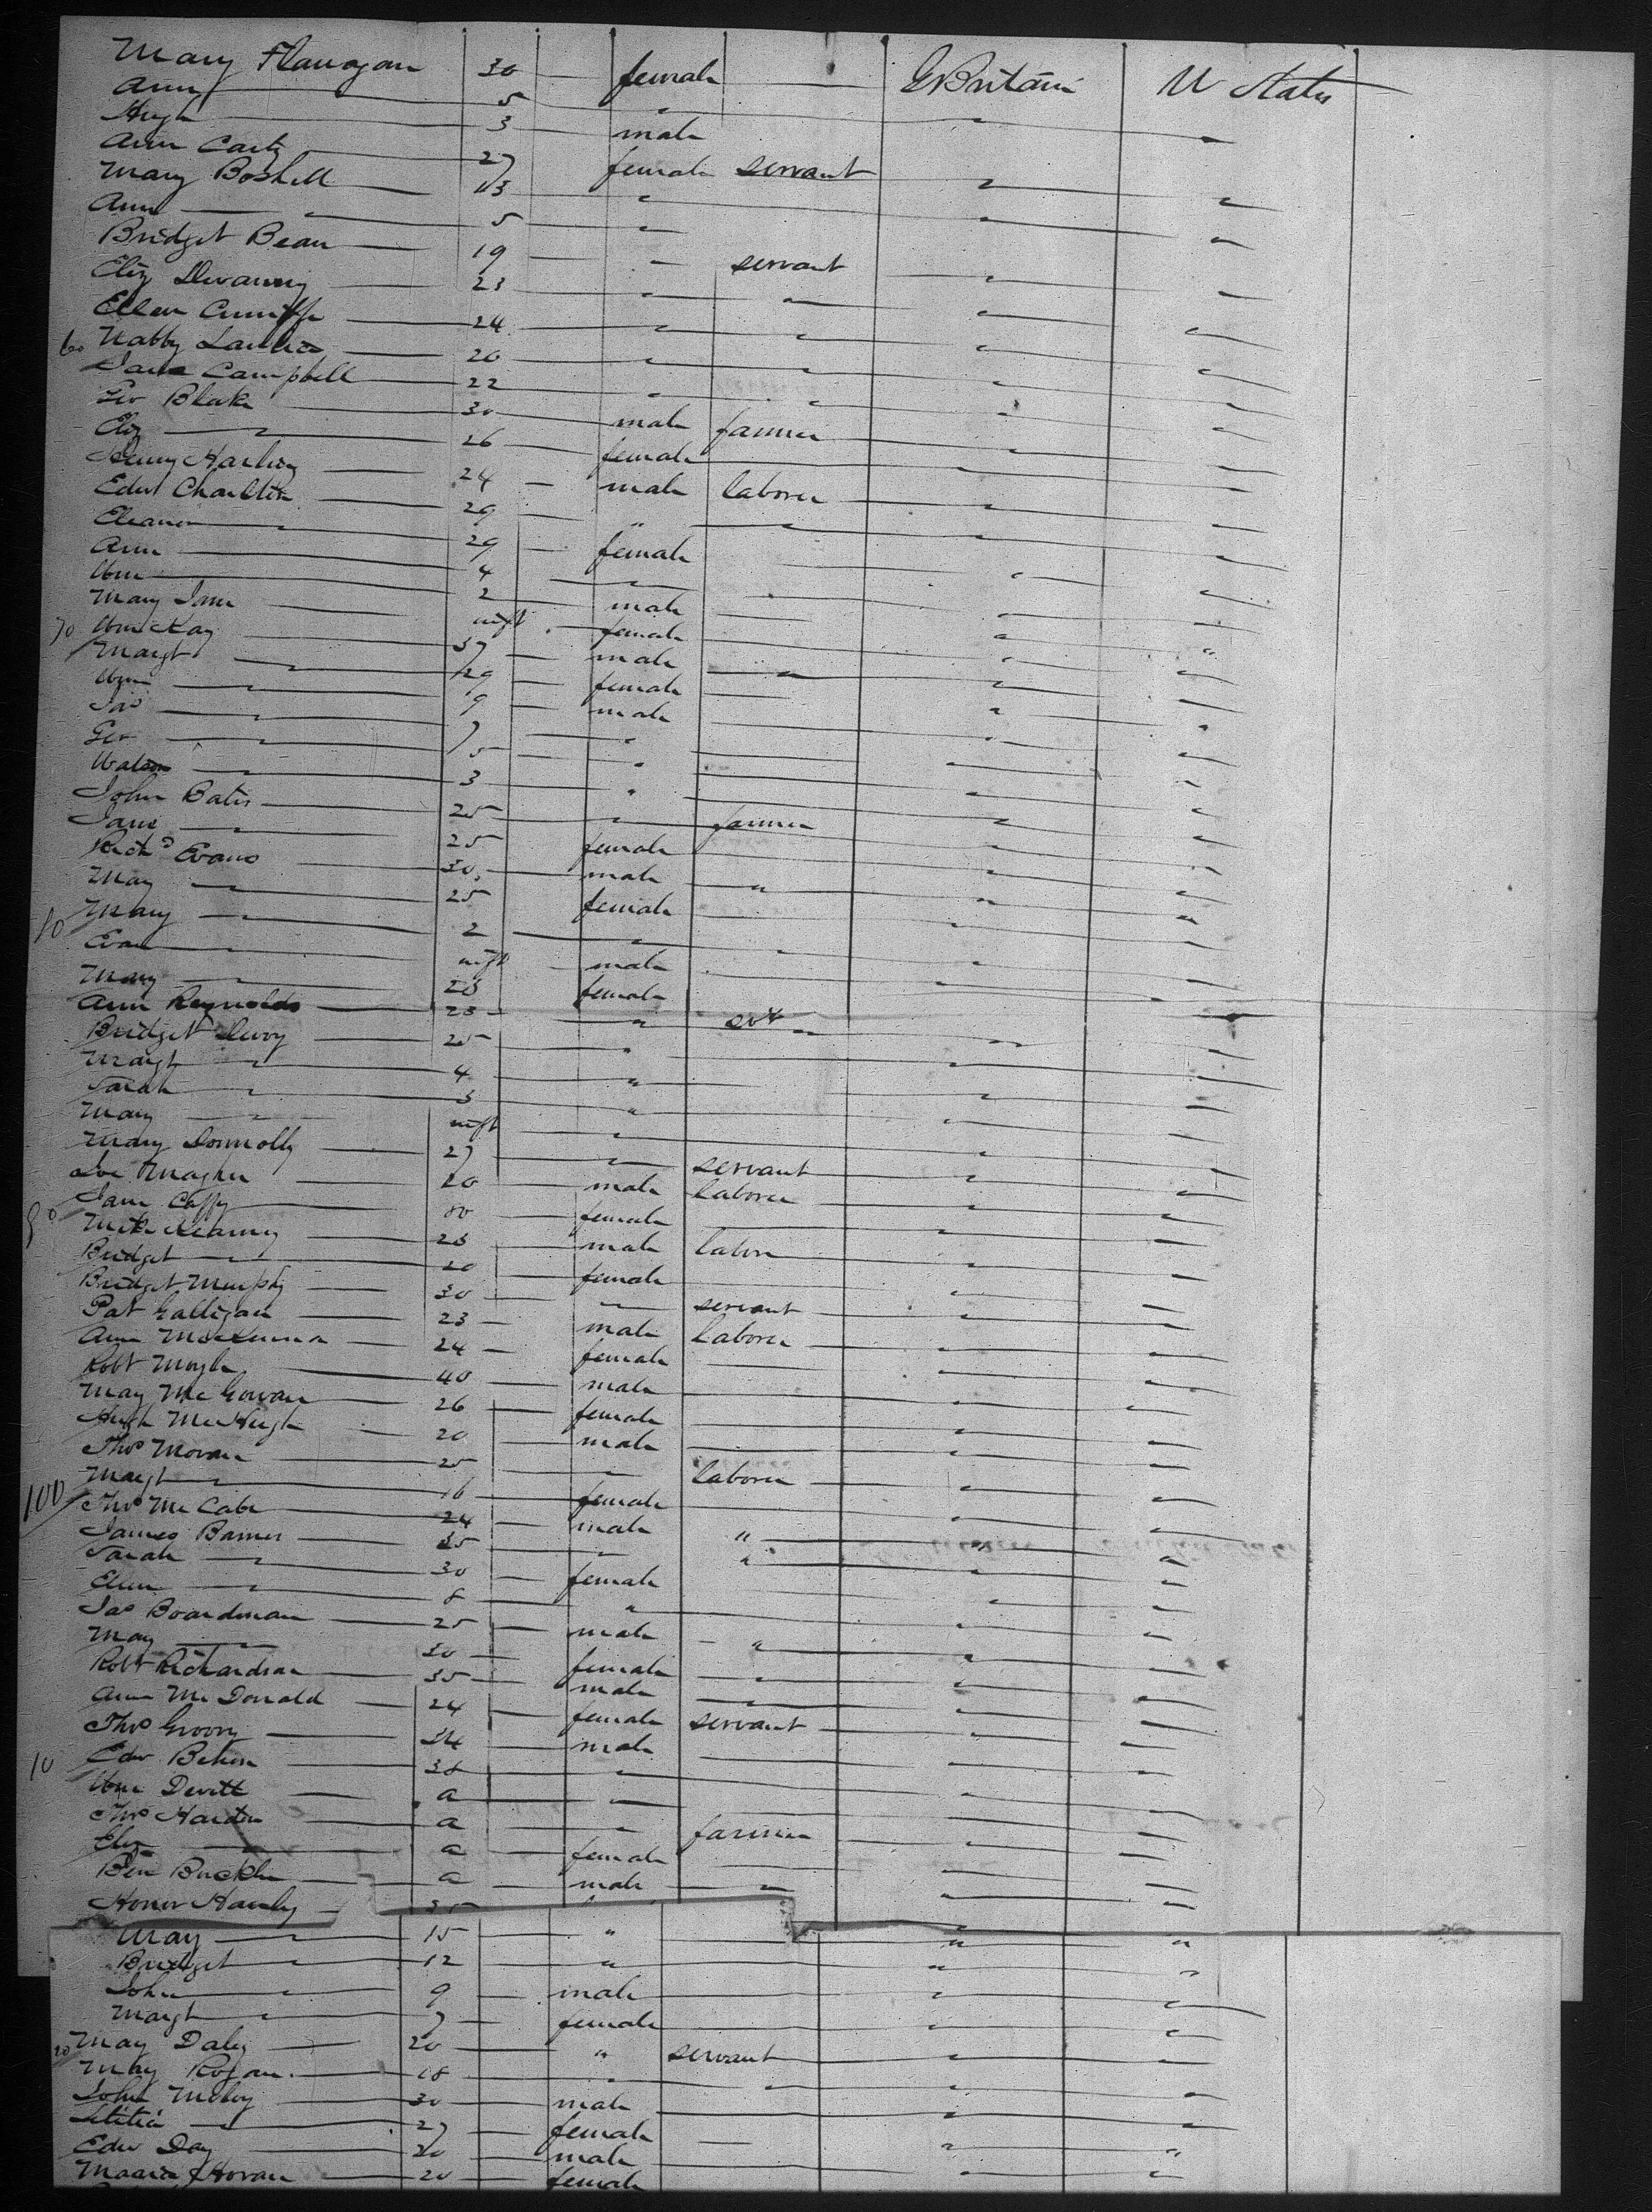 Mary Flanagan 30 — female — G Britain U States
Ann 5 "
Hugh 3 male
Ann Carty 27 female servant
Mary Boshell 23 "
Ann " 5 "
Bridget Bean 19 " servant
Eliz Devanny 23 " "
Ellen Cunniffe 24 " "
60 Nabby 20 " "
Jane Campbell 22 " "
Geo Blake 30 male farmer
Eliz " 26 female
Henry 24 male laborer
Edwd Charlton 29 " "
Eleanor " 29 female
Ann 4 "
Wm 2 male
Mary Jane inft female
70 Wm Kay 37 male "
Margt " 29 female
Wm " 9 male
Jas " 7 "
Geo " 5 "
Watson " 3 "
John Bates 25 " farmer
Jane " 25 female
Richd Evans 30 male "
May " 25 female
80 Mary " 2 "
Evan " inft male
Mary 28 female
Ann Reynolds 23 " svt
Bridget 25 "
Margt " 4 "
Sarah " 3 "
Mary " inft "
Mary Donnolly 27 " servant
Magher 20 male laborer
90 Jane female
Kearney 28 male labor
Bridget " 20 female
Bridget Murphy 30 " servant
Pat Galligan 23 male laborer
Ann McKenna 24 female
Robt 40 male
May McGowan 26 female
Hugh McHugh 20 male
Thos Moran 25 " laborer
100 Margt " 16 female
Thos McCabe 24 male "
James Barnes 35 " "
Sarah " 30 female
Ellen " 8 "
Jas Boardman 25 male "
May " 30 female
Robt Richardson 35 male "
Ann McDonald 24 female servant
Thos 24 male
10 Edw 38 "
Wm Devitt a "
Thos a " farmer
Eliz " a female
Ben a male "
Honor
May " 15 "
Bridget " 12 "
John " 9 male
Margt " 7 female
20 May Daley 20 " servant
May Rogan 18 " "
John 30 male
Letitia " 27 female
Edw Day 20 male
20 female